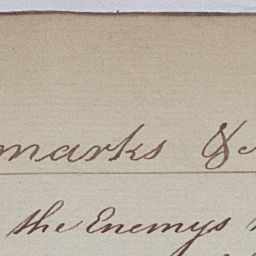 marks &c
the Enemys